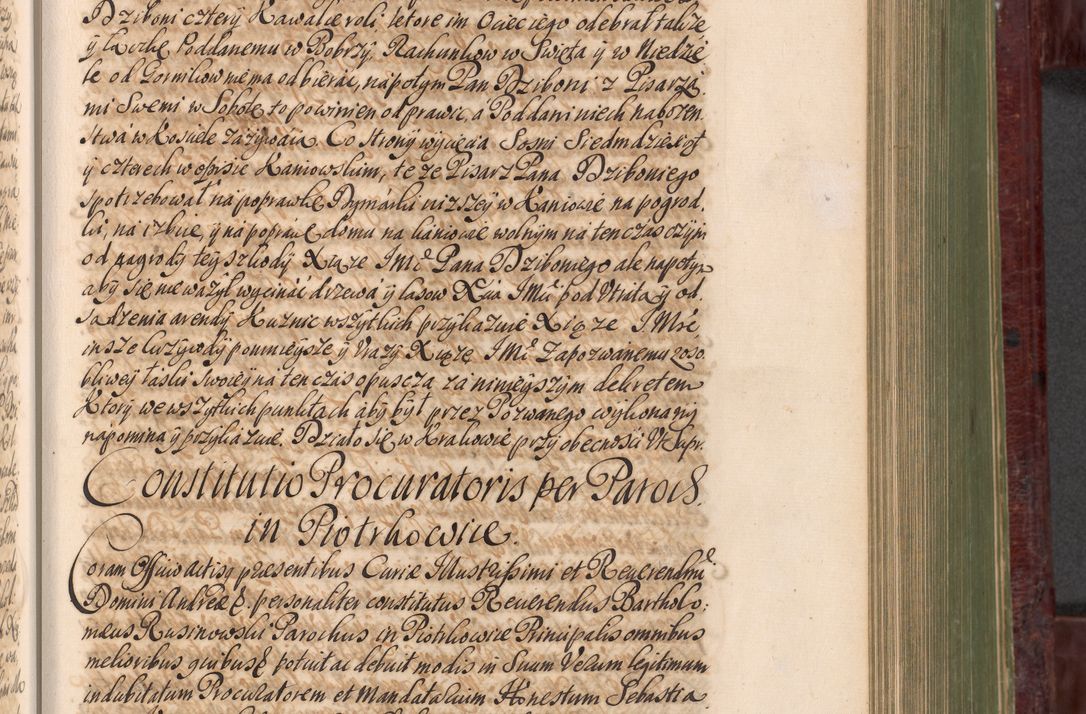 Dziboni cztery Kawalce roli, ktore im Ociec iego odebrał także
y łączkę Poddanemu w Bobrzy, Rachunkow w Swięta y w Niedzie
le od Gornikow niema odbierac, napotym Pan Dziboni z Pisarza
mi Swemi w Sobotę to powinien odprawic, a Poddani niech nabozen
stwa w Kosciele zazywaią. Co strony wycięcia Sosni Siedmdziesiąt
y czterech w opisie Kaniowskim, te ze Pisarz Pana Dziboniego
spotrzebował na poprawkę Dymarki nizszey w Kaniowie na pogrod,
ki, na izbice, y na poprawę domu na kaniowie wolnym na ten czas czym
od nagrody tey szkody Xiąze JMć Pana Dziboniego ale napotym
aby się nie wazył wycinać drzewa y lasow Xcia JMći pod Utratą y od,
sądzenia arendy Kuznic wszytkich przykazuie Xiąze JMść
insze krzywdy pomnieysze y Urazy Xiąze JMć Zapozwanemu zoso,
bliwey łaski Swoiey na ten czas opuszcza za ninieyszym dekretem
Ktory we wszytkich punktach aby był przez Pozwanego wykonany
napomina y przykazuie. Działo się w Krakowie przy obecności Ut supr.
Constitutio Procuratoris per Paroch.
in Piotrkowice.
Coram Officio Actisq presentibus Curiæ Illustrissimi et Reuerendmi
Domini Andreæ &. personaliter constitutus Reuerendus Bartholo:
mæus Rusinowski Parochus in Piotrkowice Principalis omnibus
melioribus quibus& potuit ac debuit modis in Suum Verum legitimum
indubitatum Procuratorem et Mandatarium Honestum Sebastia